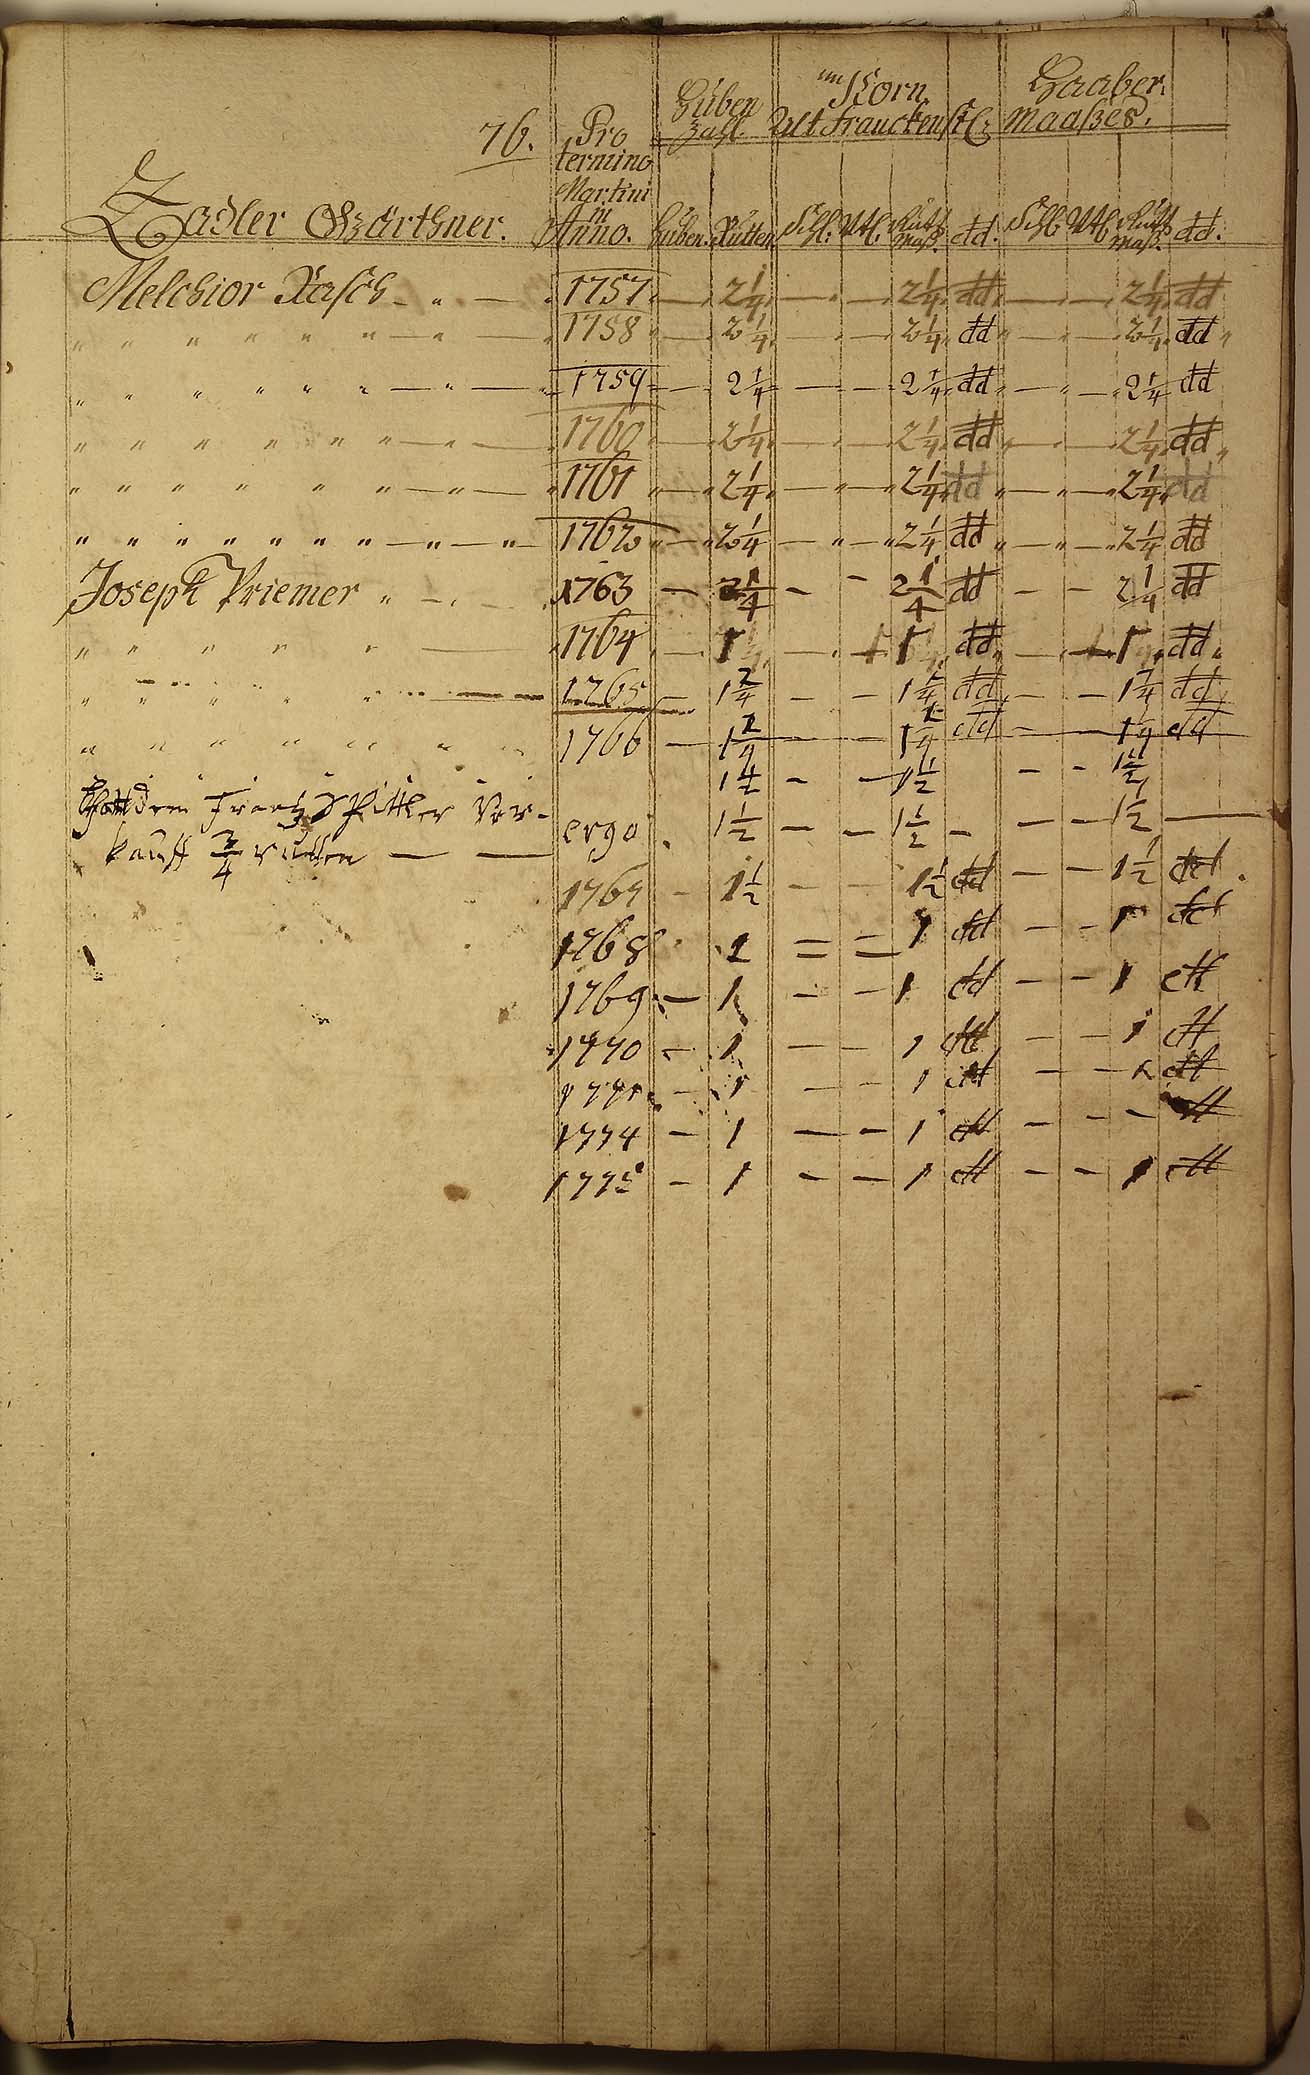 76.
Pro termino Martini in Anno.
Huben Zahl
im Korn Haaber.
Alt Franckenst: Maaßes.
Zadler Gärthner.
Huben. Rutten Schl: Vtl: dd. Schl: Vtl: dd.
Melchior Rasch — " — 1757 — 2 1/4 — — 2 1/4 dd — — 2 1/4 dd
" " " " " " — " — 1758 — 2 1/4 — — 2 1/4 dd — — 2 1/4 dd
" " " " " " — " — 1759 — 2 1/4 — — 2 1/4 dd — — 2 1/4 dd
" " " " " " — " — 1760 — 2 1/4 — — 2 1/4 dd — — 2 1/4 dd
" " " " " " — " — 1761 — 2 1/4 — — 2 1/4 dd — — 2 1/4 dd
" " " " " " " " — " — 1762 — 2 1/4 — — 2 1/4 dd — — 2 1/4 dd
Joseph Priemer " — 1763 — 2 1/4 — — 2 1/4 dd — — 2 1/4 dd
" " " " " — 1764 — 1 — — 1 dd — — 1 dd
" " " " — 1765 — 1 — — 1 dd — — 1 dd
" " " " " " " 1766 — 1 — — 1 dd — — 1 dd
— — 1 1/2 — — 1 1/2
dem Frantz Pittler Ver-
kaufft 3/4 rutten — — ergo. 1 1/2 — — 1 1/2 — — — 1 1/2 —
1767 — 1 1/2 — — 1 1/2 dd — — 1 1/2 dd
1768 1 — — 1 dd — — 1 dd
1769 — 1 — — 1 dd — — 1 dd
1770 — 1 — — 1 dd — — 1 dd
1771 — 1 — — 1 dd — — 1 dd
1774 — 1 — — 1 dd — — — dd
1775 — 1 — — 1 dd — — 1 dd